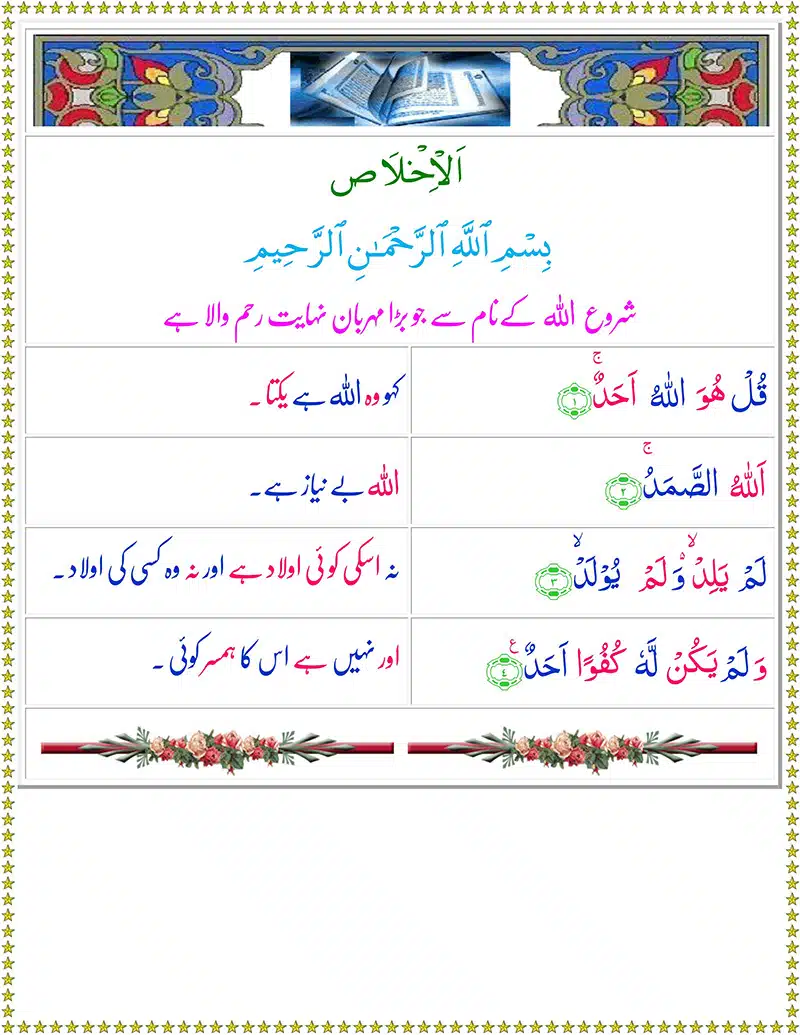 اَلْاِخْلَاص
بِسْمِ ٱللَّهِ ٱلرَّحْمَـٰنِ ٱلرَّحِيمِ
شروع اللہ کے نام سے جو بڑا مہربان نہایت رحم والا ہے
قُلْ هُوَ اللّٰهُ اَحَدٌۚ ۝١ کہو وہ اللہ ہے یکتا۔
اَللّٰهُ الصَّمَدُۚ ۝٢ اللہ بے نیاز ہے۔
لَمْ يَلِدْ ۙ۬ وَلَمْ يُوْلَدْۙ ۝٣ نہ اسکی کوئی اولاد ہے اور نہ وہ کسی کی اولاد۔
وَلَمْ يَكُنْ لَّهٗ كُفُوًا اَحَدٌ ۧ ۝٤ اور نہیں ہے اس کا ہمسر کوئی۔